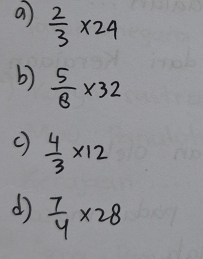 a) 2/3 ×24
b) 5/8 ×32
c) 4/3 ×12
d) 7/4 ×28